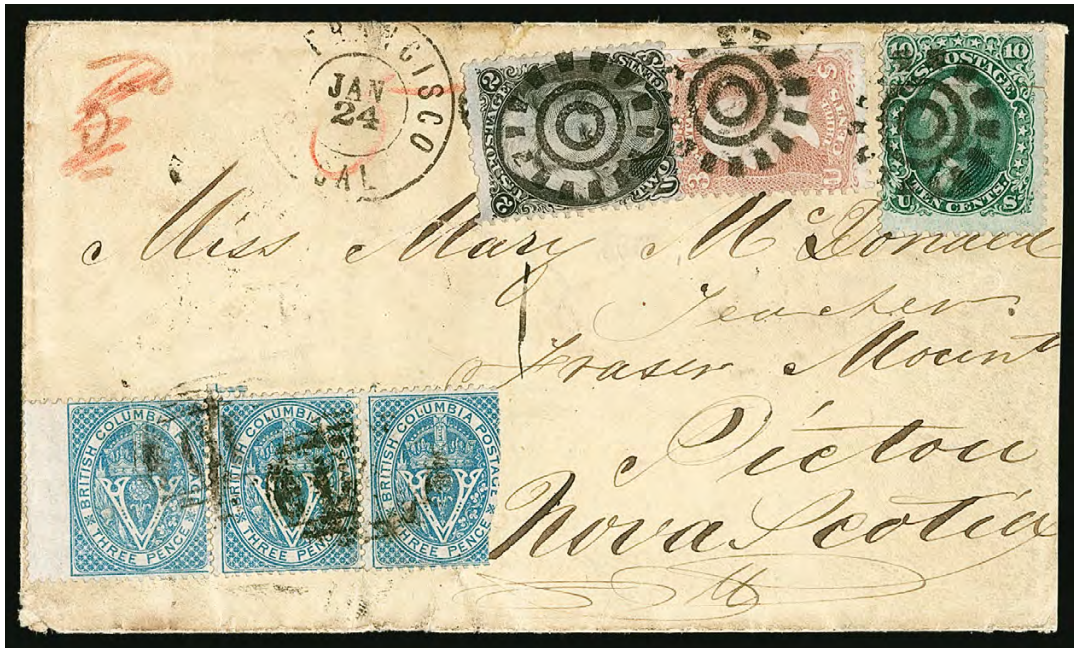 FRANCISCO
JAN
24
CAL
2 U.S. POSTAGE 2
TWO CENTS
3 U
10 U.S. POSTAGE 10
U TEN CENTS S
Miss Mary McDonald
Teacher
Fraser Mount
Pictou
Nova Scotia
BRITISH COLUMBIA POSTAGE
THREE PENCE
BRITISH COLUMBIA POSTAGE
THREE PENCE
BRITISH COLUMBIA POSTAGE
THREE PENCE